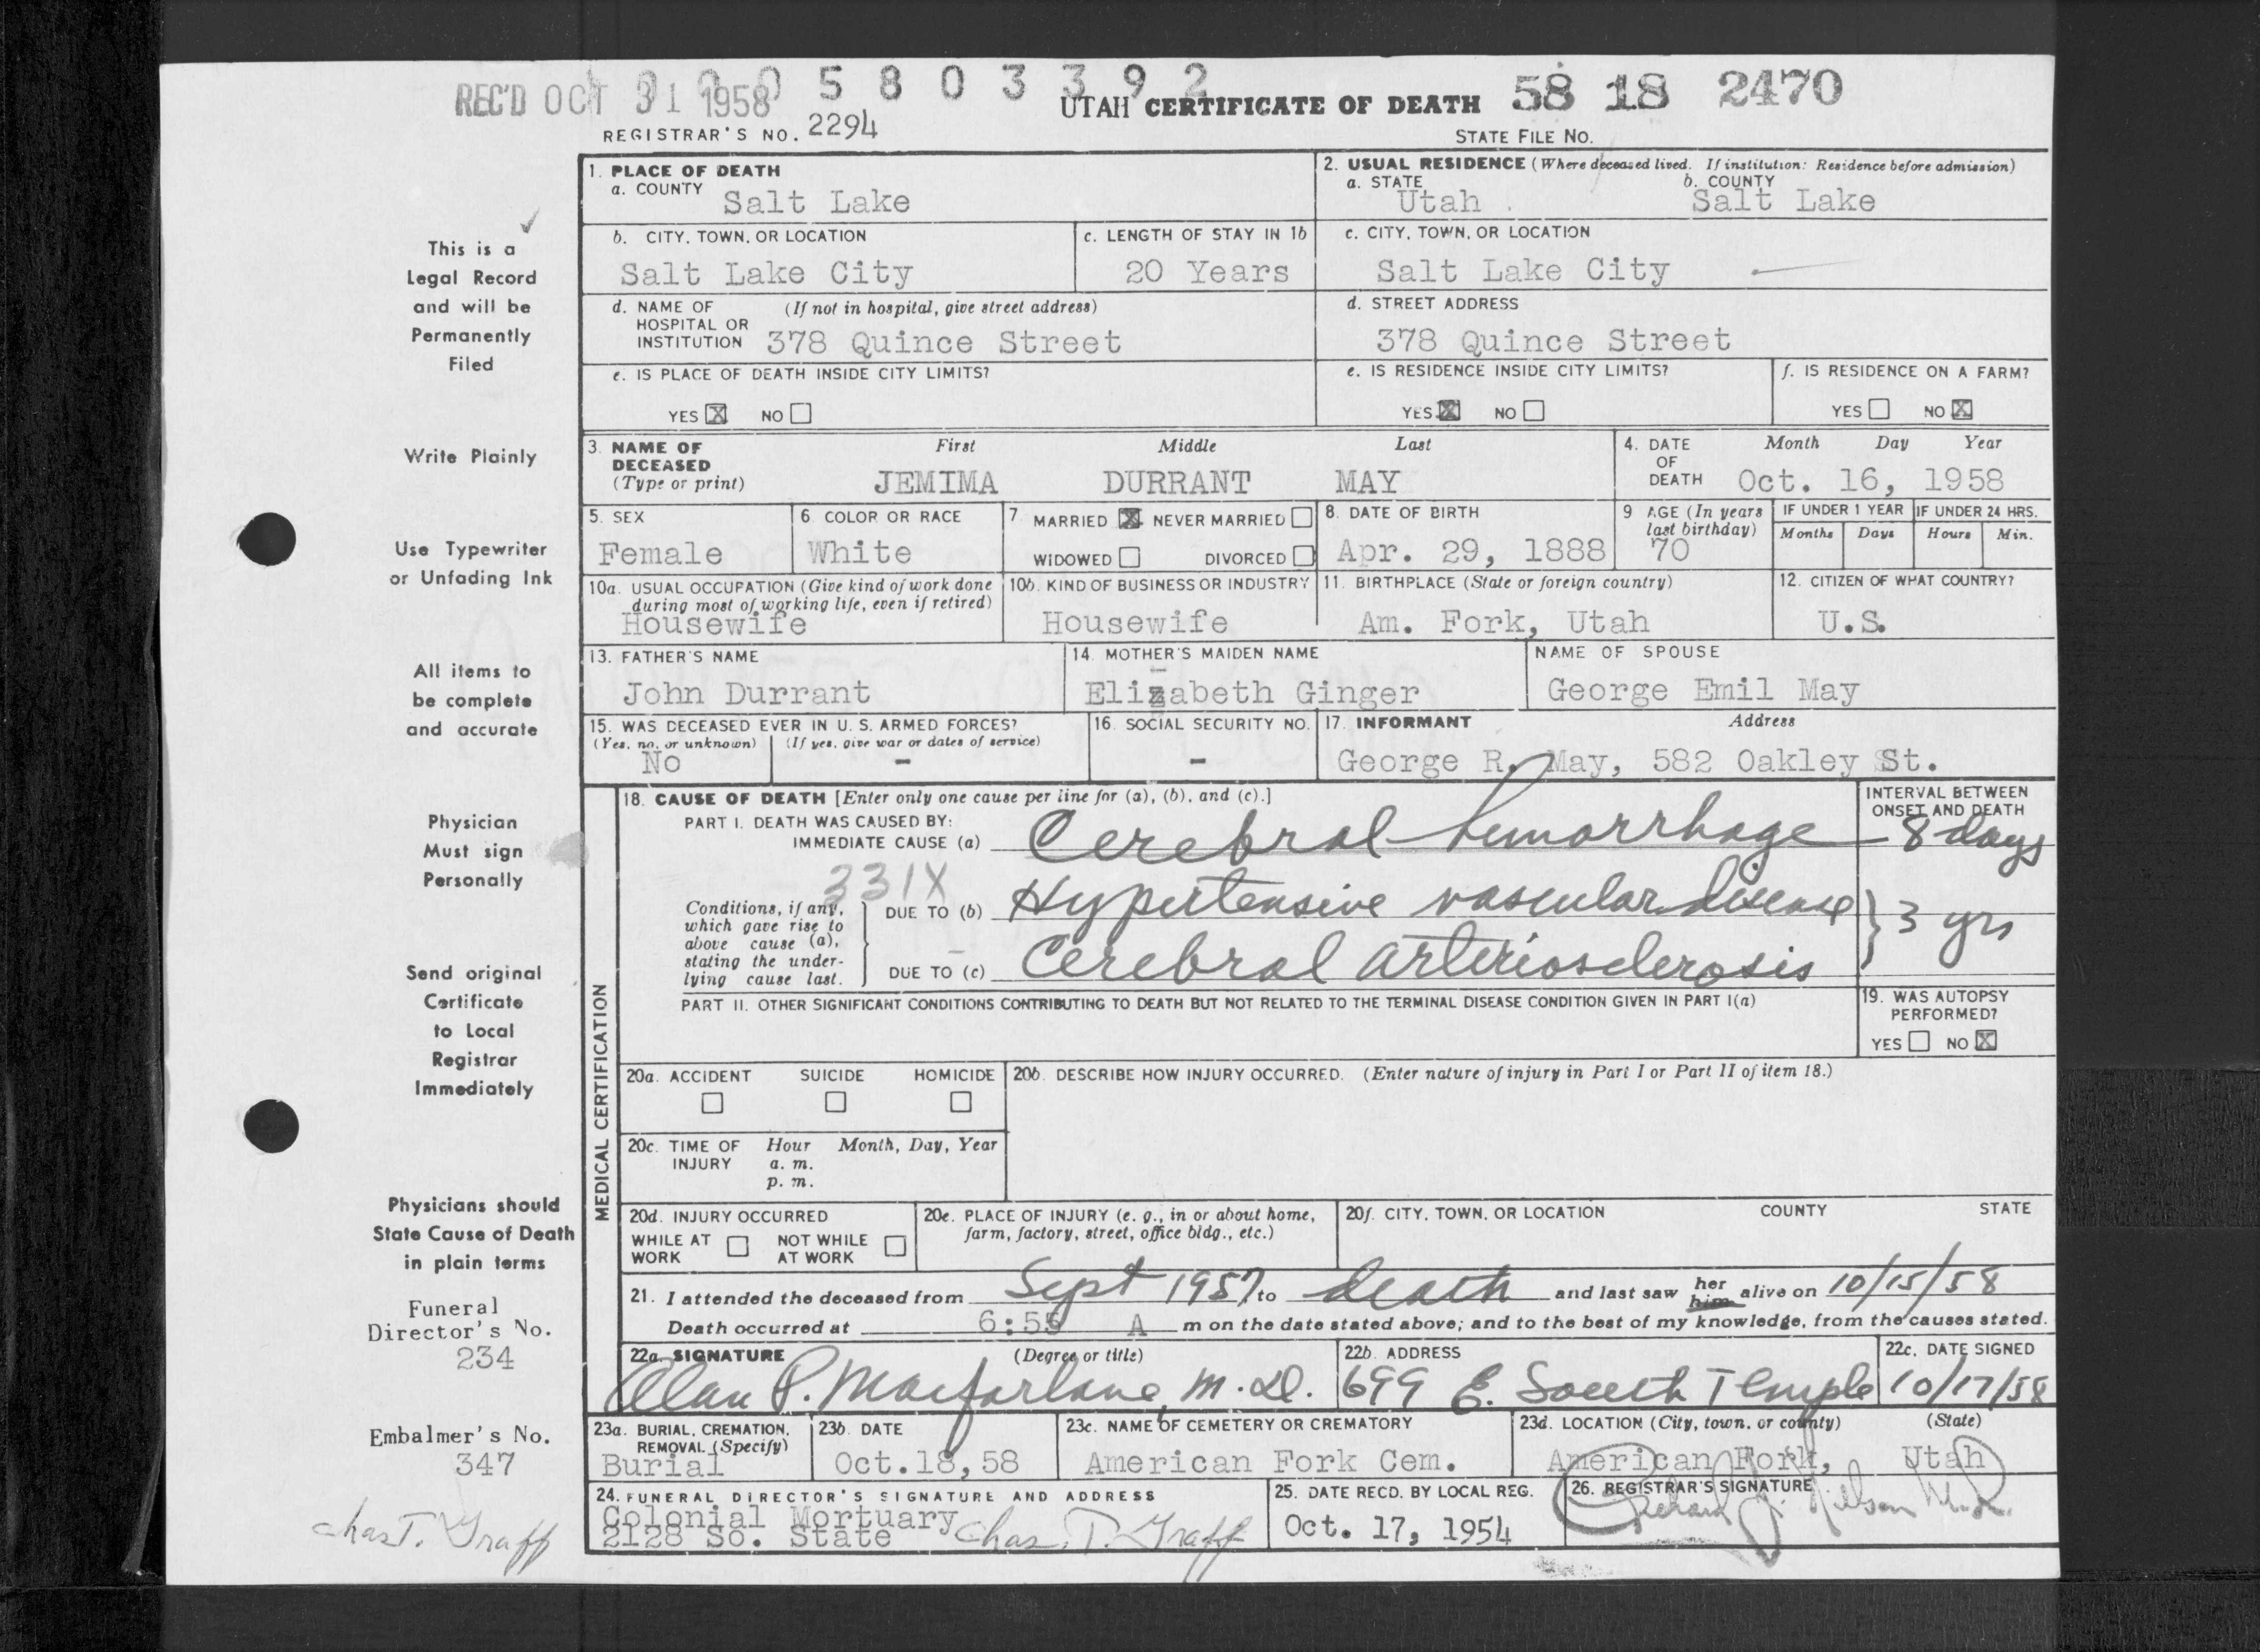 REC'D OCT 31 1958 5 8 0 3 3 9 2
UTAH CERTIFICATE OF DEATH 58 18 2470
REGISTRAR'S NO. 2294 STATE FILE NO.
1. PLACE OF DEATH
a. COUNTY Salt Lake
2. USUAL RESIDENCE (Where deceased lived. If institution: Residence before admission)
a. STATE Utah b. COUNTY Salt Lake
b. CITY, TOWN, OR LOCATION Salt Lake City
c. LENGTH OF STAY IN 1b 20 Years
c. CITY, TOWN, OR LOCATION Salt Lake City
d. NAME OF HOSPITAL OR INSTITUTION (If not in hospital, give street address) 378 Quince Street
d. STREET ADDRESS 378 Quince Street
e. IS PLACE OF DEATH INSIDE CITY LIMITS?
YES X NO
e. IS RESIDENCE INSIDE CITY LIMITS?
YES X NO
f. IS RESIDENCE ON A FARM?
YES NO X
3. NAME OF DECEASED (Type or print)
First Middle Last
JEMIMA DURRANT MAY
4. DATE OF DEATH Month Day Year
Oct. 16, 1958
5. SEX Female
6. COLOR OR RACE White
7. MARRIED X NEVER MARRIED
WIDOWED DIVORCED
8. DATE OF BIRTH Apr. 29, 1888
9 AGE (In years last birthday) 70
IF UNDER 1 YEAR Months Days
IF UNDER 24 HRS. Hours Min.
10a. USUAL OCCUPATION (Give kind of work done during most of working life, even if retired)
Housewife
10b. KIND OF BUSINESS OR INDUSTRY Housewife
11. BIRTHPLACE (State or foreign country) Am. Fork, Utah
12. CITIZEN OF WHAT COUNTRY? U.S.
13. FATHER'S NAME John Durrant
14. MOTHER'S MAIDEN NAME Elizabeth Ginger
NAME OF SPOUSE George Emil May
15. WAS DECEASED EVER IN U. S. ARMED FORCES?
(Yes, no, or unknown) (If yes, give war or dates of service)
No -
16. SOCIAL SECURITY NO. -
17. INFORMANT Address
George R. May, 582 Oakley St.
MEDICAL CERTIFICATION
18. CAUSE OF DEATH [Enter only one cause per line for (a), (b), and (c).]
INTERVAL BETWEEN ONSET AND DEATH
PART I. DEATH WAS CAUSED BY:
IMMEDIATE CAUSE (a) Cerebral hemorrhage 8 days
331X
Conditions, if any, which gave rise to above cause (a), stating the underlying cause last.
DUE TO (b) Hypertensive vascular disease
} 3 yrs
DUE TO (c) Cerebral arteriosclerosis
PART II. OTHER SIGNIFICANT CONDITIONS CONTRIBUTING TO DEATH BUT NOT RELATED TO THE TERMINAL DISEASE CONDITION GIVEN IN PART I(a)
19. WAS AUTOPSY PERFORMED?
YES NO X
20a. ACCIDENT SUICIDE HOMICIDE
20b. DESCRIBE HOW INJURY OCCURRED. (Enter nature of injury in Part I or Part II of item 18.)
20c. TIME OF INJURY Hour Month, Day, Year
a. m.
p. m.
20d. INJURY OCCURRED
WHILE AT WORK NOT WHILE AT WORK
20e. PLACE OF INJURY (e. g., in or about home, farm, factory, street, office bldg., etc.)
20f. CITY, TOWN, OR LOCATION COUNTY STATE
21. I attended the deceased from Sept 1957 to death and last saw her him alive on 10/15/58
Death occurred at 6:55 A m on the date stated above; and to the best of my knowledge, from the causes stated.
22a. SIGNATURE (Degree or title)
Alan P. Macfarlane, M.D.
22b. ADDRESS 699 E. South Temple
22c. DATE SIGNED 10/17/58
23a. BURIAL, CREMATION, REMOVAL (Specify) Burial
23b. DATE Oct.18,58
23c. NAME OF CEMETERY OR CREMATORY American Fork Cem.
23d. LOCATION (City, town, or county) (State)
American Fork, Utah
24. FUNERAL DIRECTOR'S SIGNATURE AND ADDRESS
Colonial Mortuary
2128 So. State Chas. T. Graff
25. DATE RECD. BY LOCAL REG.
Oct. 17, 1954
26. REGISTRAR'S SIGNATURE
This is a
Legal Record
and will be
Permanently
Filed
Write Plainly
Use Typewriter
or Unfading Ink
All items to
be complete
and accurate
Physician
Must sign
Personally
Send original
Certificate
to Local
Registrar
Immediately
Physicians should
State Cause of Death
in plain terms
Funeral
Director's No.
234
Embalmer's No.
347
Chas T. Graff